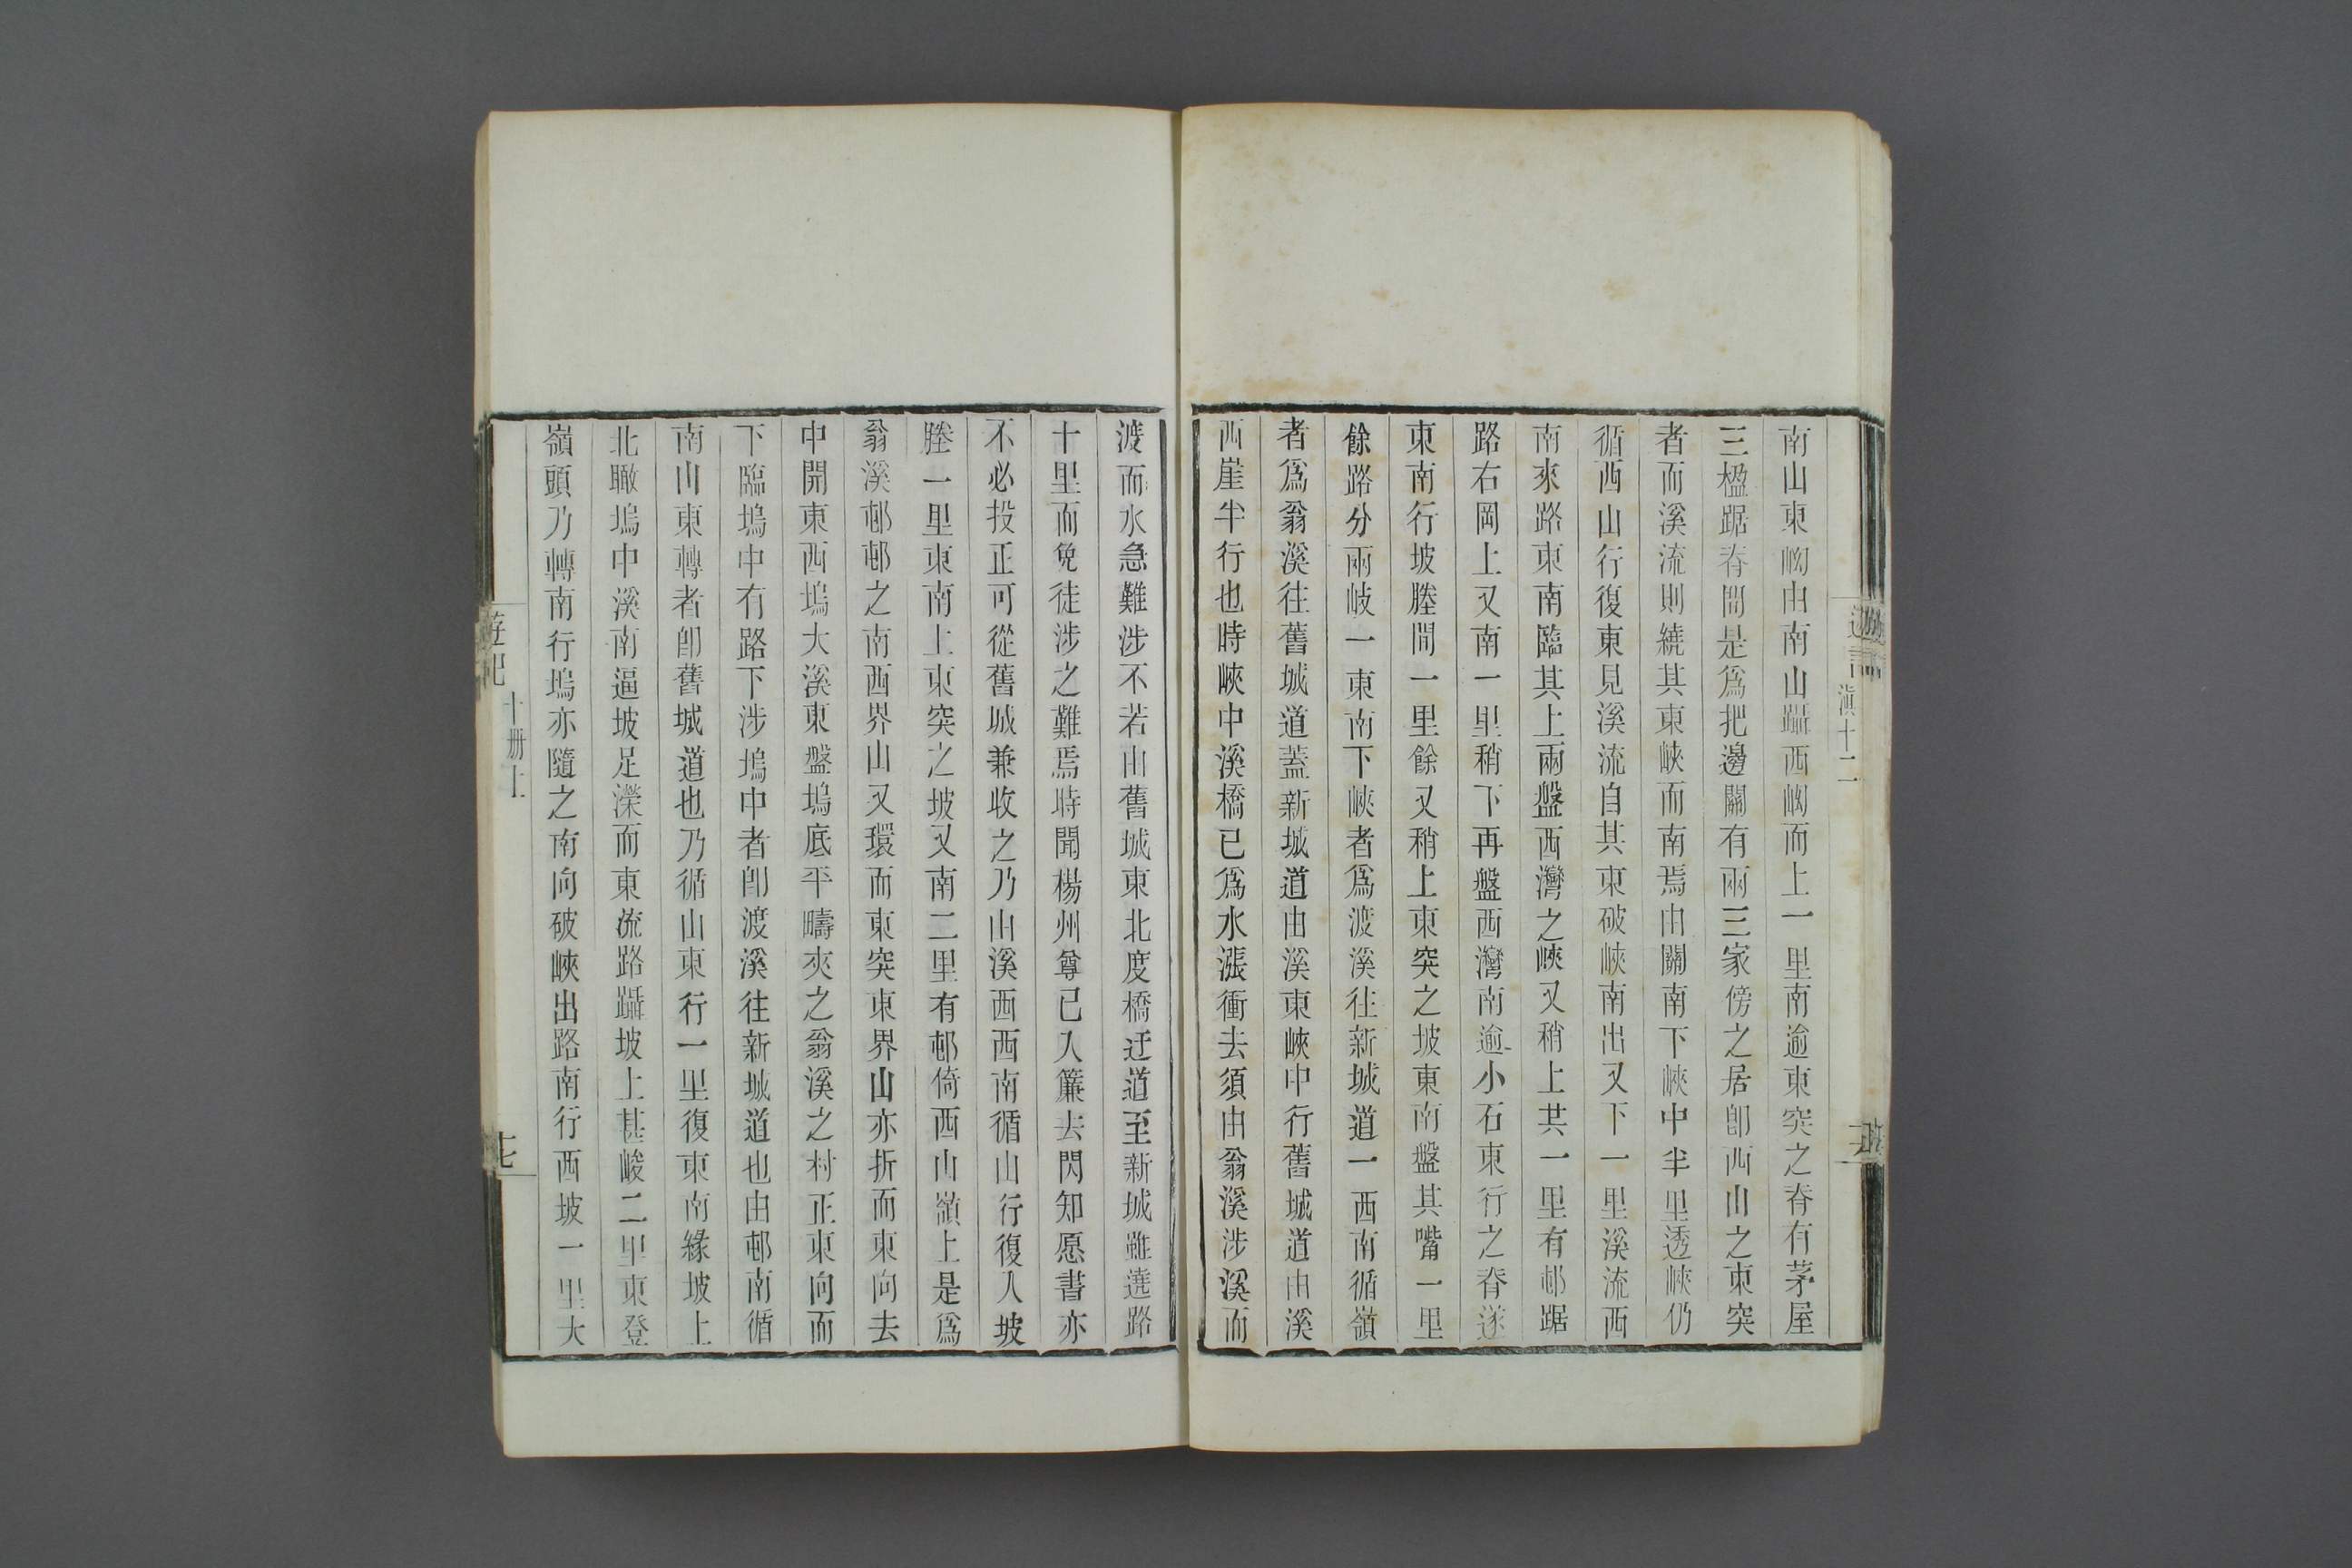 南山東坳由南山躡西坳而上一里南逾東突之脊有茅屋
三楹踞脊間是爲把邊關有兩三家傍之居卽西山之東突
者而溪流則繞其東峽而南焉由關南下峽中半里透峽仍
循西山行復東見溪流自其東破峽南出又下一里溪流西
南來路東南臨其上兩盤西灣之峽又稍上共一里有邨踞
路右岡上又南一里稍下再盤西灣南逾小石東行之脊遂
東南行坡塍間一里餘又稍上東突之坡東南盤其嘴一里
餘路分兩岐一東南下峽者爲渡溪往新城道一西南循嶺
者爲翁溪往舊城道蓋新城道由溪東峽中行舊城道由溪
西崖半行也時峽中溪橋已爲水漲衝去須由翁溪涉溪而
渡而水急難涉不若由舊城東北度橋迂道至新城雖遶路
十里而免徒涉之難焉時聞楊州尊已入簾去閃知愿書亦
不必投正可從舊城兼收之乃由溪西西南循山行復入坡
塍一里東南上東突之坡又南二里有邨倚西山嶺上是爲
翁溪邨邨之南西界山又環而東突東界山亦折而東向去
中開東西塢大溪東盤塢底平疇夾之翁溪之村正東向而
下臨塢中有路下涉塢中者卽渡溪往新城道也由邨南循
南山東轉者卽舊城道也乃循山東行一里復東南緣坡上
北瞰塢中溪南逼坡足濚而東流路躡坡上甚峻二里東登
嶺頭乃轉南行塢亦隨之南向破峽出路南行西坡一里大
遊記
十册上
十七
滇十二